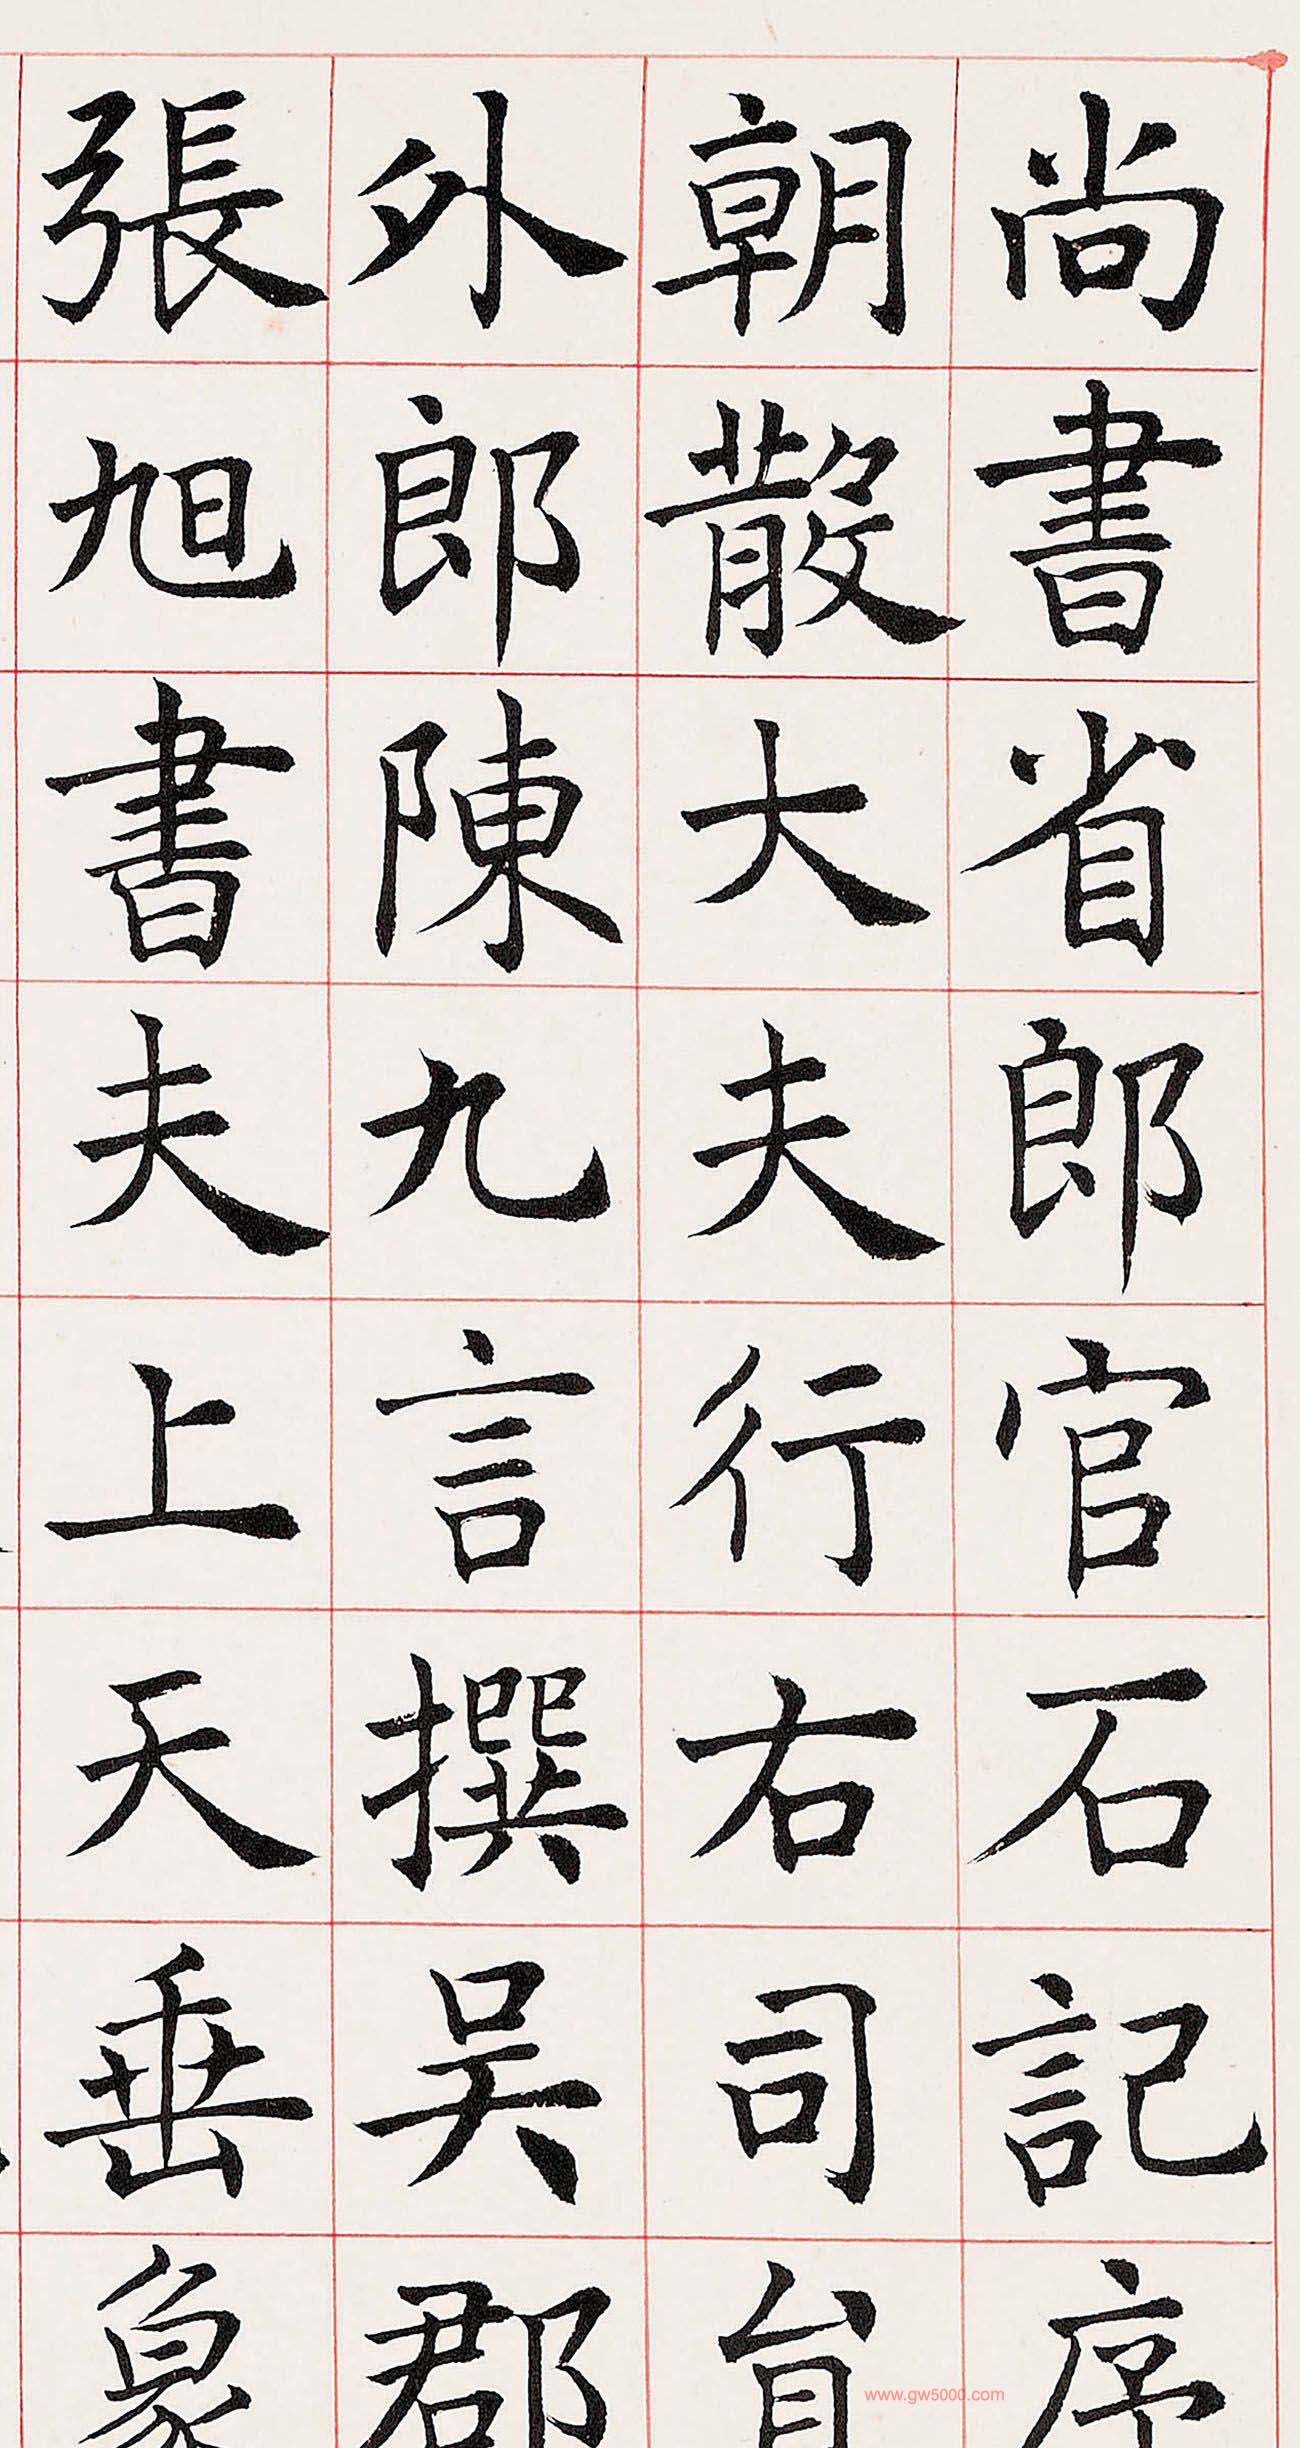 尚書省郎官石記序
朝散大夫行右司員
外郎陳九言撰吳郡
張旭書夫上天垂象
www.gw5000.com